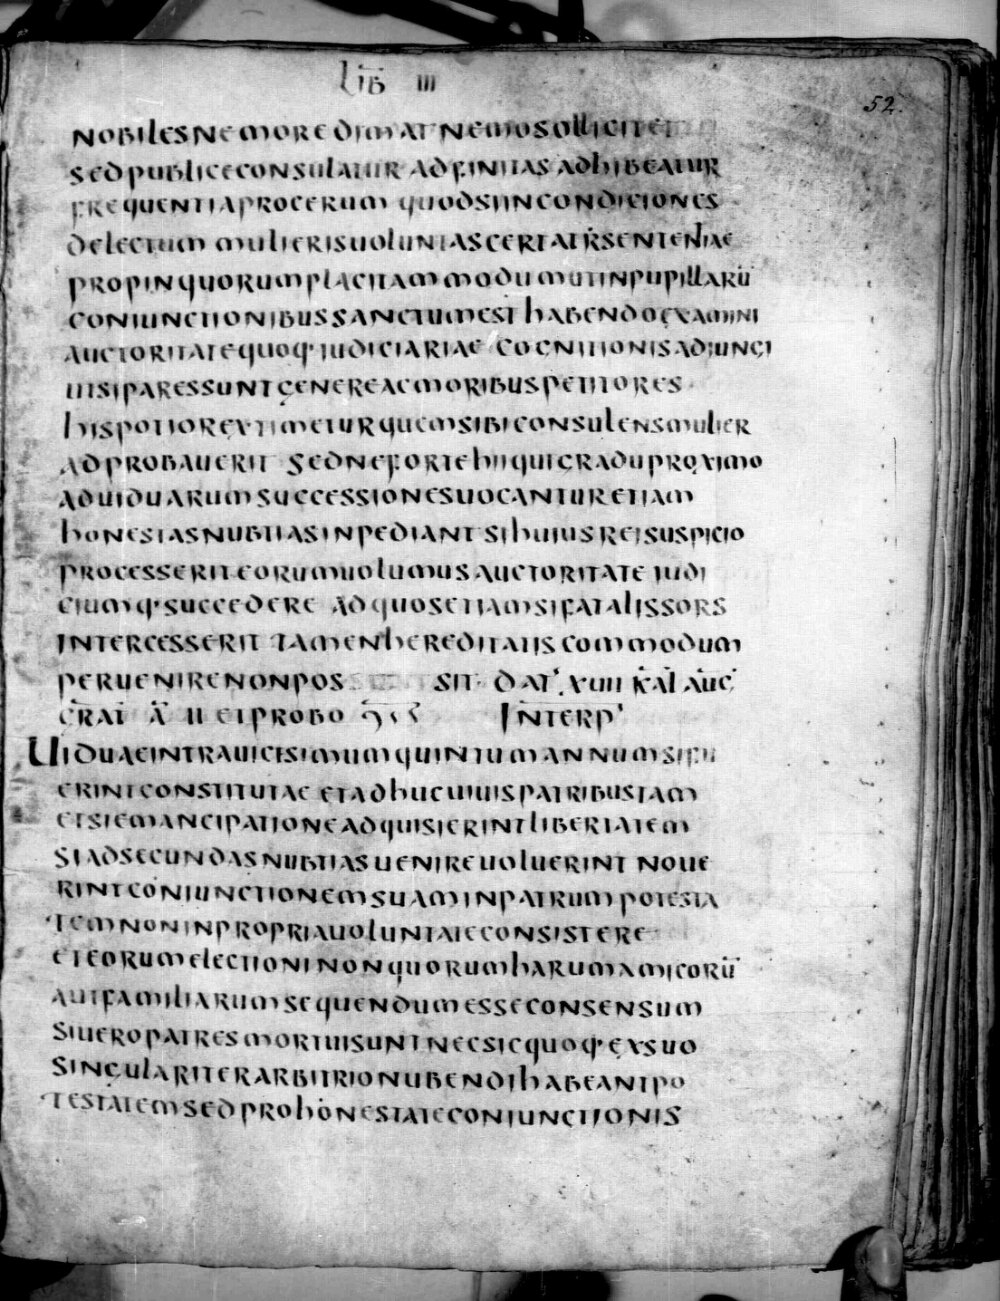 LIB III
52.
NOBILES NEMO REDIMAT NEMO SOLLICITET
SED PUBLICE CONSULATUR ADFINITAS ADHIBEATUR
FREQUENTIA PROCERUM QUOD SI IN CONDICIONES
DELECTUM MULIERIS UOLUNTAS CERTAT̄R SENTENTIAE
PROPINQUORUM PLACITAM MODUM UT IN PUPILLARŪ
CONIUNCTIONIBUS SANCTUM EST HABENDO EXAMINI
AUCTORITATE QUOQ· IUDICIARIAE COGNITIONIS ADIUNGI
UT SI PARES SUNT GENERE AC MORIBUS PETITORES
HIS POTIOR EXTIMETUR QUEM SIBI CONSULENS MULIER
ADPROBAUERIT SED NE FORTE HII QUI GRADU PROXIMO
AD UIDUARUM SUCCESSIONES UOCANTUR ETIAM
HONESTAS NUBTIAS INPEDIANT SI HUIUS REI SUSPICIO
PROCESSERIT EORUM UOLUMUS AUCTORITATE IUDI
CIUMQ· SUCCEDERE AD QUOS ETIAM SI FATALIS SORS
INTERCESSERIT TAMEN HEREDITATIS COMMODUM
PERUENIRE NON POS SIT DAT· XUIII KAL AUG
GRAT Ā II ET PROBO INTERP'
UIDUAE INTRA UICISIMUM QUINTUM ANNUM SI FU
ERINT CONSTITUTAE ET ADHUC UIUIS PATRIBUS TAM
ETSI EMANCIPATIONE ADQUISIERINT LIBERTATEM
SI AD SECUNDAS NUBTIAS UENIRE UOLUERINT NOUE
RINT CONIUNCTIONEM SUAM IN PATRUM POTESTA
TEM NON IN PROPRIA UOLUNTATE CONSISTERE
ET EORUM ELECTIONI NON QUORUM HARUM AMICORŪ
AUT FAMILIARUM SEQUENDUM ESSE CONSENSUM
SI UERO PATRES MORTUI SUNT NEC SIC QUOQ· EX SUO
SINGULARITER ARBITRIO NUBENDI HABEANT PO
TESTATEM SED PRO HONESTATE CONIUNCTIONIS